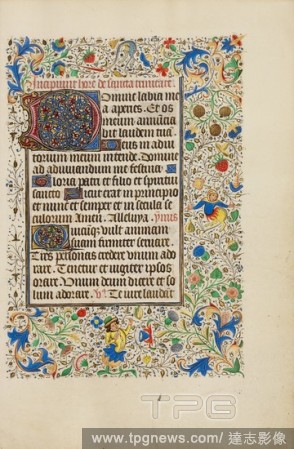 Incipiunt hore de sancta trinitate
Domine labia me
a aperies. Et os
meum annūcia
bit laudem tuā.
Deus in adiu
torium meum intende. Domine
ad adiuvandum me festina
Gloria patri et filio et spiritui
sancto Sicut erat in principio
et nunc et semper et in secula se
culorum Amen. Alleluya. ymus
Quicūq; vult animam
suam firmiter servare.
Tres personas credere vnum ado
rare. Tenetur et iugiter ipsos
orare. Vnum deum dicere et so
lum adorare. Te iure laudāt
TPG
www.tpgnews.com / 達志影像